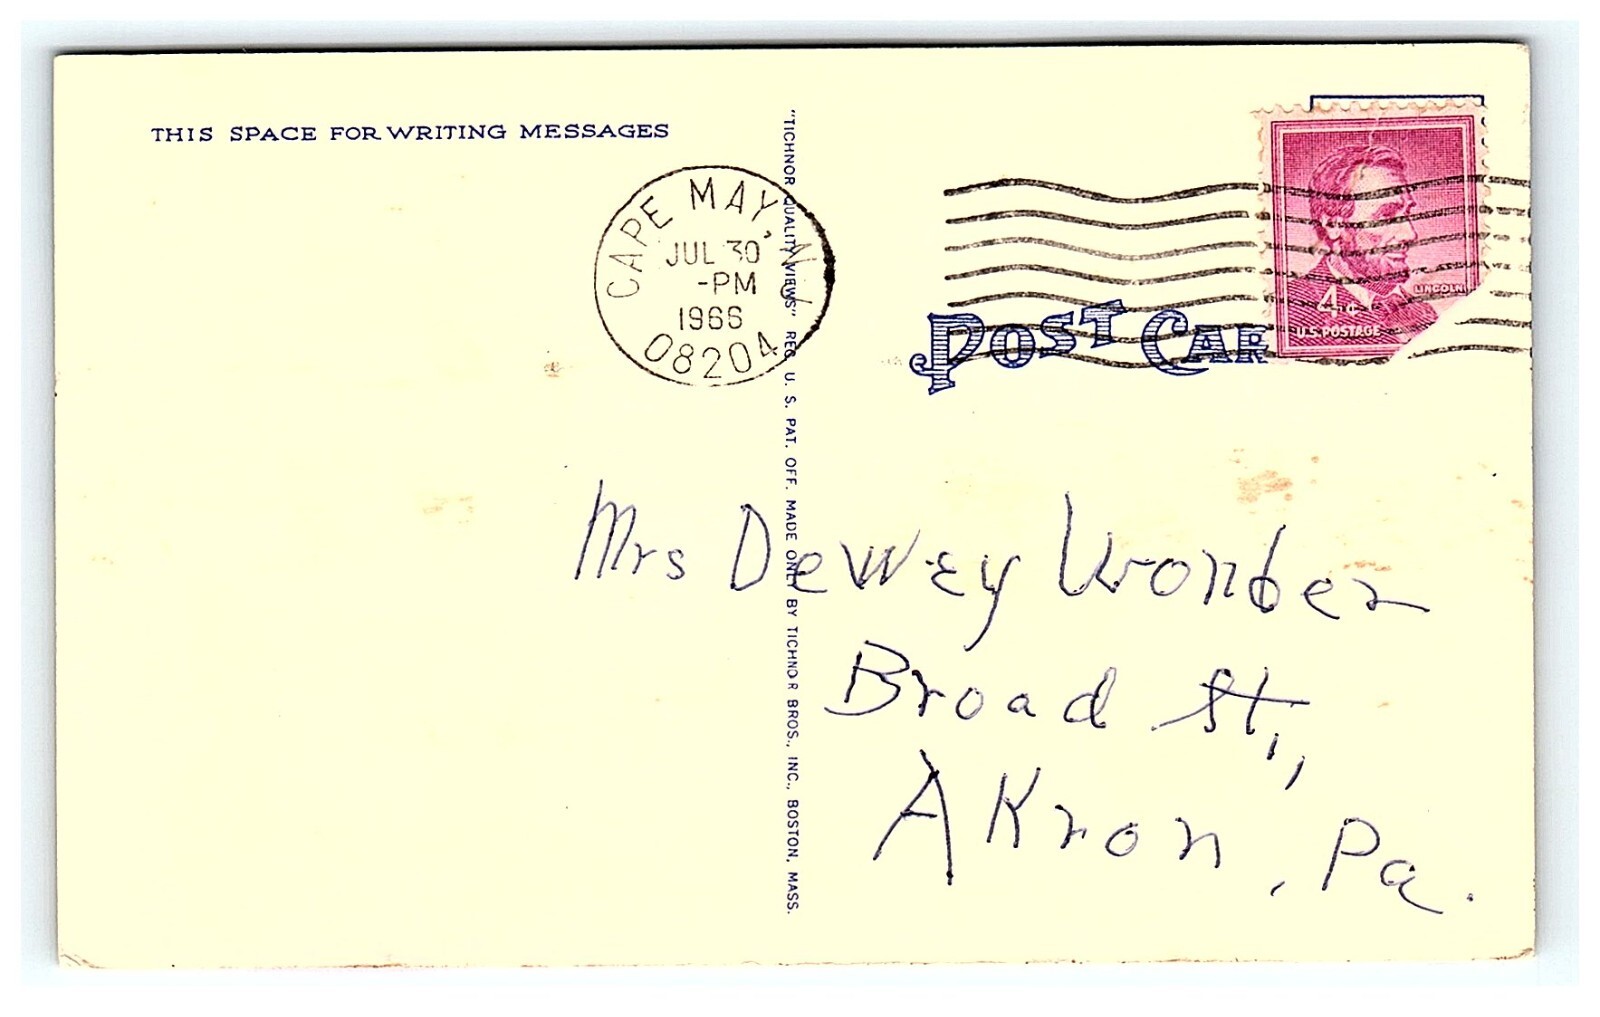 THIS SPACE FOR WRITING MESSAGES
"TICHNOR QUALITY VIEWS" REG. U. S. PAT. OFF. MADE ONLY BY TICHNOR BROS., INC., BOSTON, MASS.
CAPE MAY, N.J.
JUL 30
-PM
1966
08204
LINCOLN
4¢
U.S. POSTAGE
POST CAR
Mrs Dewey Wonder
Broad St.,
Akron, Pa.